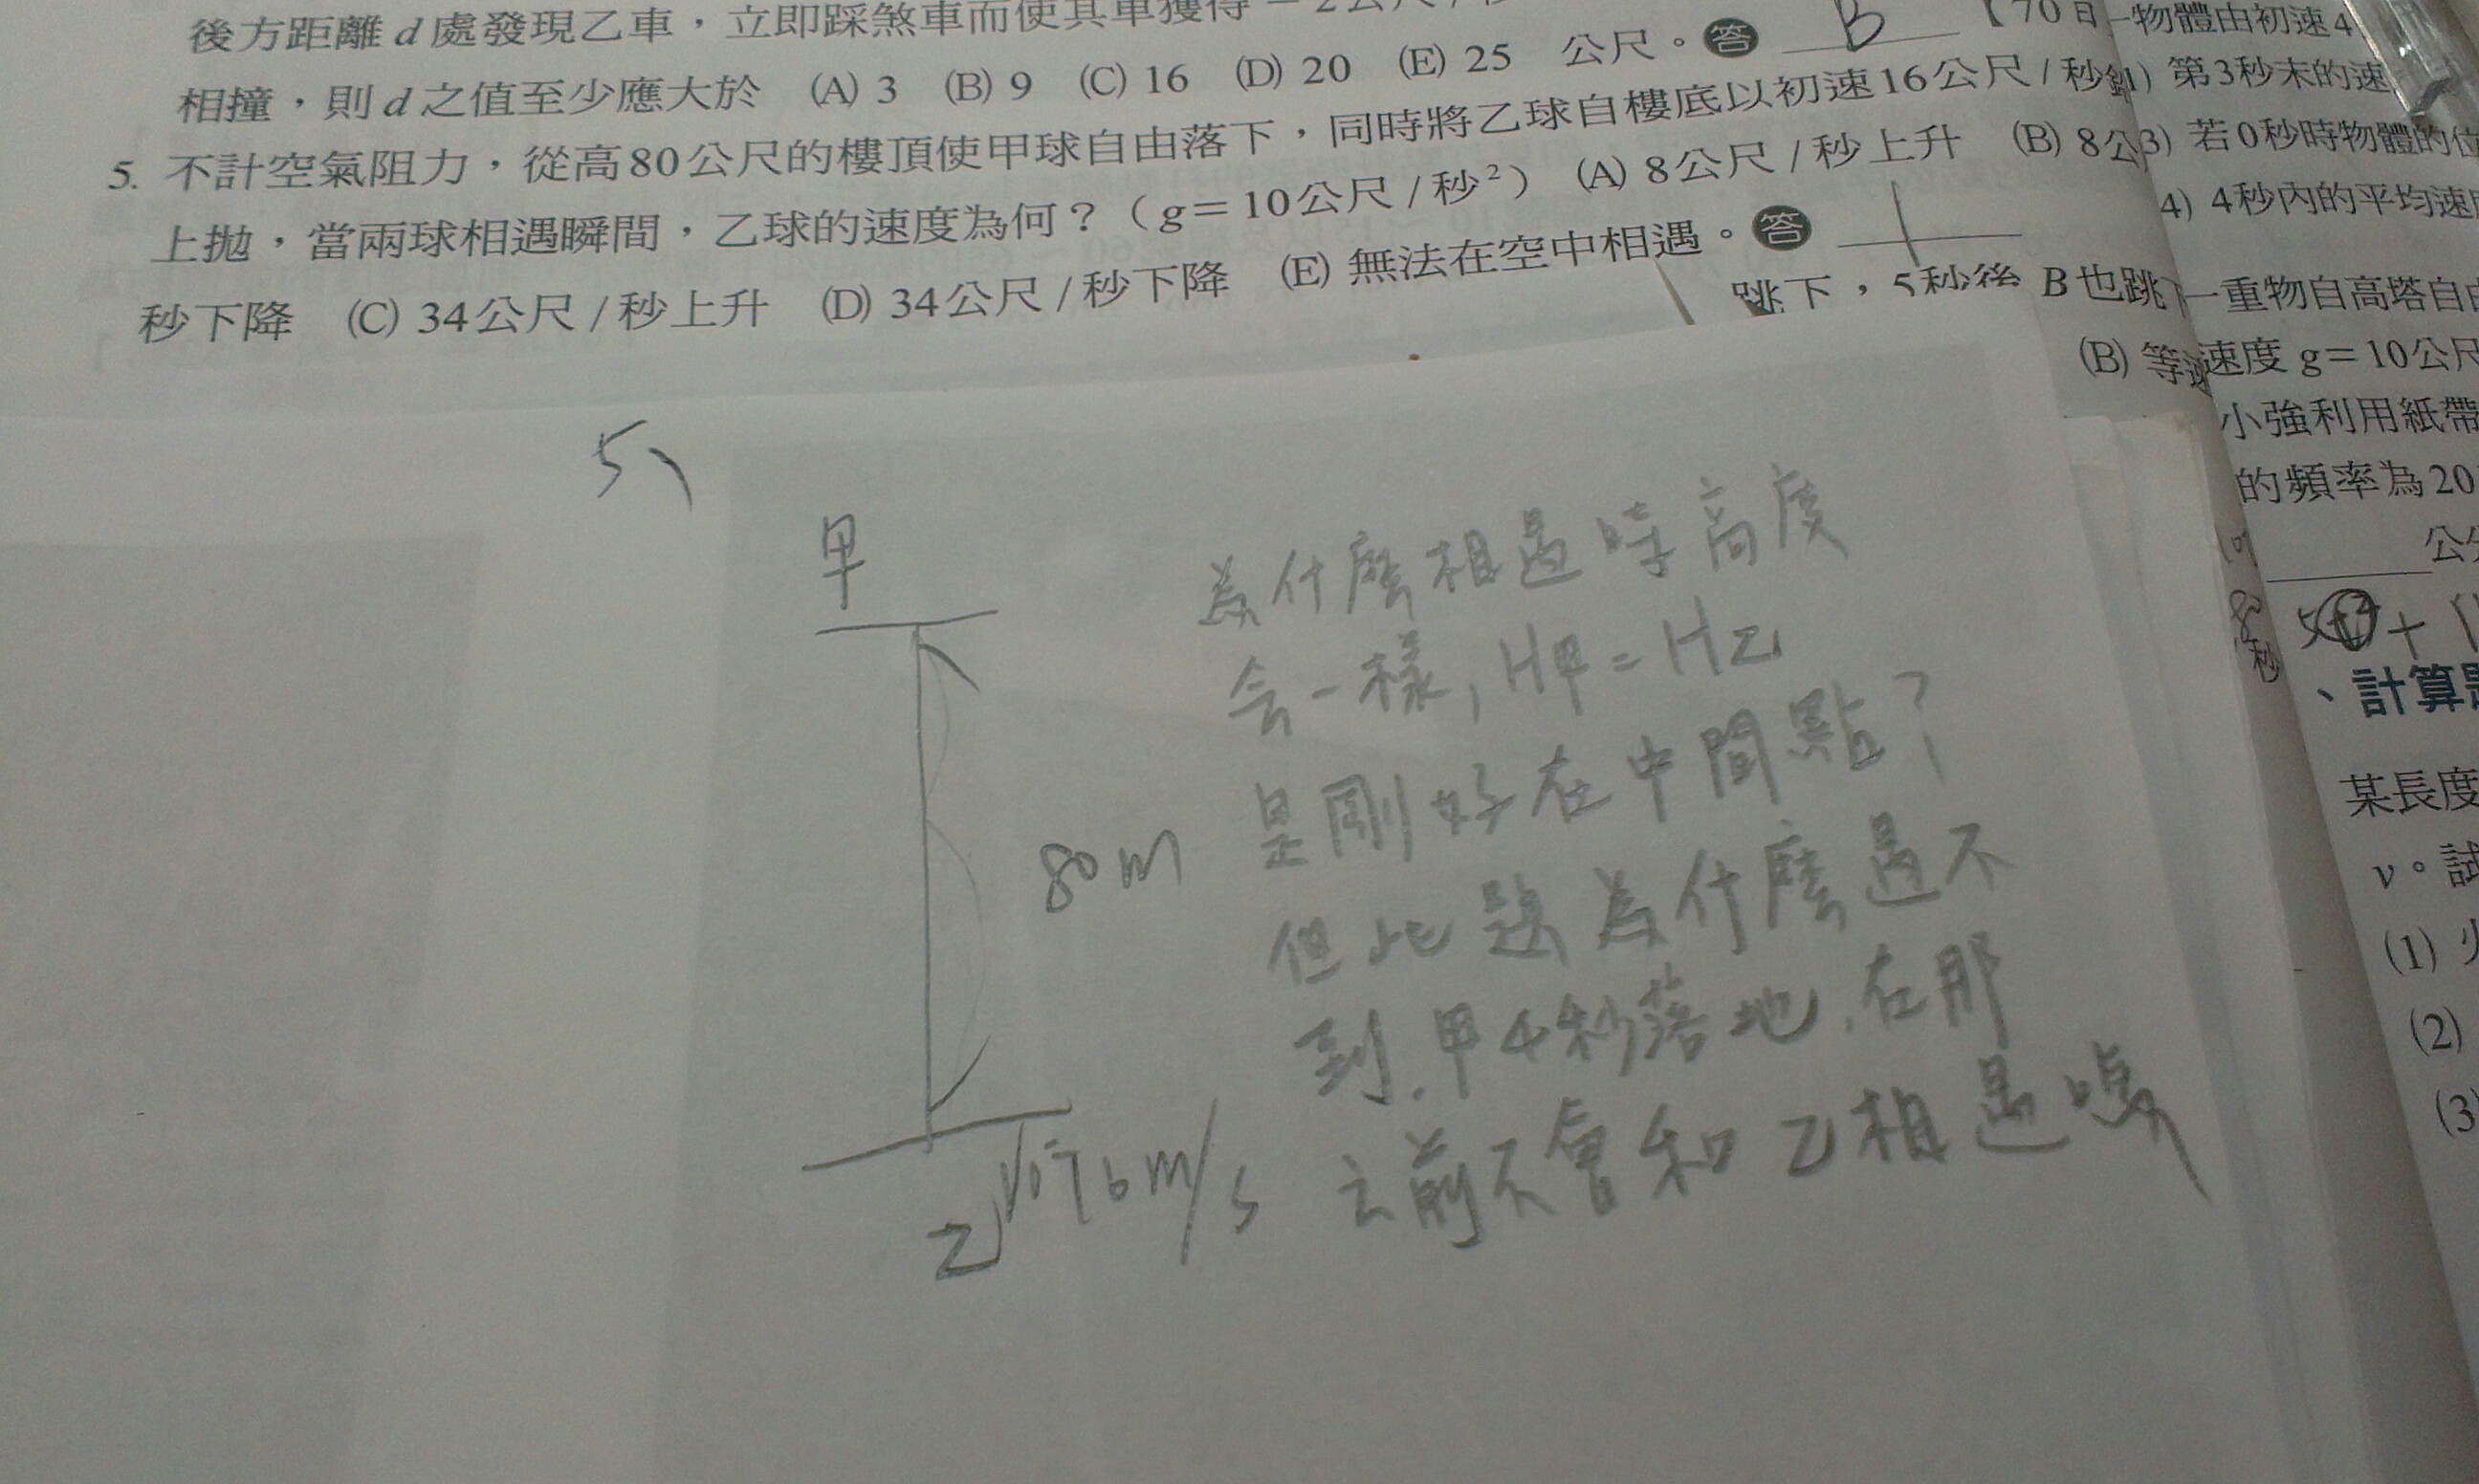 後方距離 d 處發現乙車，立即踩煞車而使其車獲得 －2公尺/秒
相撞，則 d 之值至少應大於 (A) 3 (B) 9 (C) 16 (D) 20 (E) 25 公尺。答 B
5. 不計空氣阻力，從高80公尺的樓頂使甲球自由落下，同時將乙球自樓底以初速16公尺/秒鉛
上拋，當兩球相遇瞬間，乙球的速度為何？（g＝10公尺/秒²） (A) 8公尺/秒上升 (B) 8公
秒下降 (C) 34公尺/秒上升 (D) 34公尺/秒下降 (E) 無法在空中相遇。答
跳下，5秒後 B 也跳下
(B) 等
【70日
一物體由初速4
1) 第3秒末的速
3) 若0秒時物體的位
4) 4秒內的平均速度
一重物自高塔自由
速度 g＝10公尺
小強利用紙帶
的頻率為20
公分
秒
、計算題
某長度
v。試
(1) 火
(2)
(3)
5、
甲
80m
乙 V0=16m/s
為什麼相遇時高度
会一樣，H甲=H乙
是剛好在中間點？
但此題為什麼遇不
到，甲4秒落地，在那
之前不會和乙相遇嗎